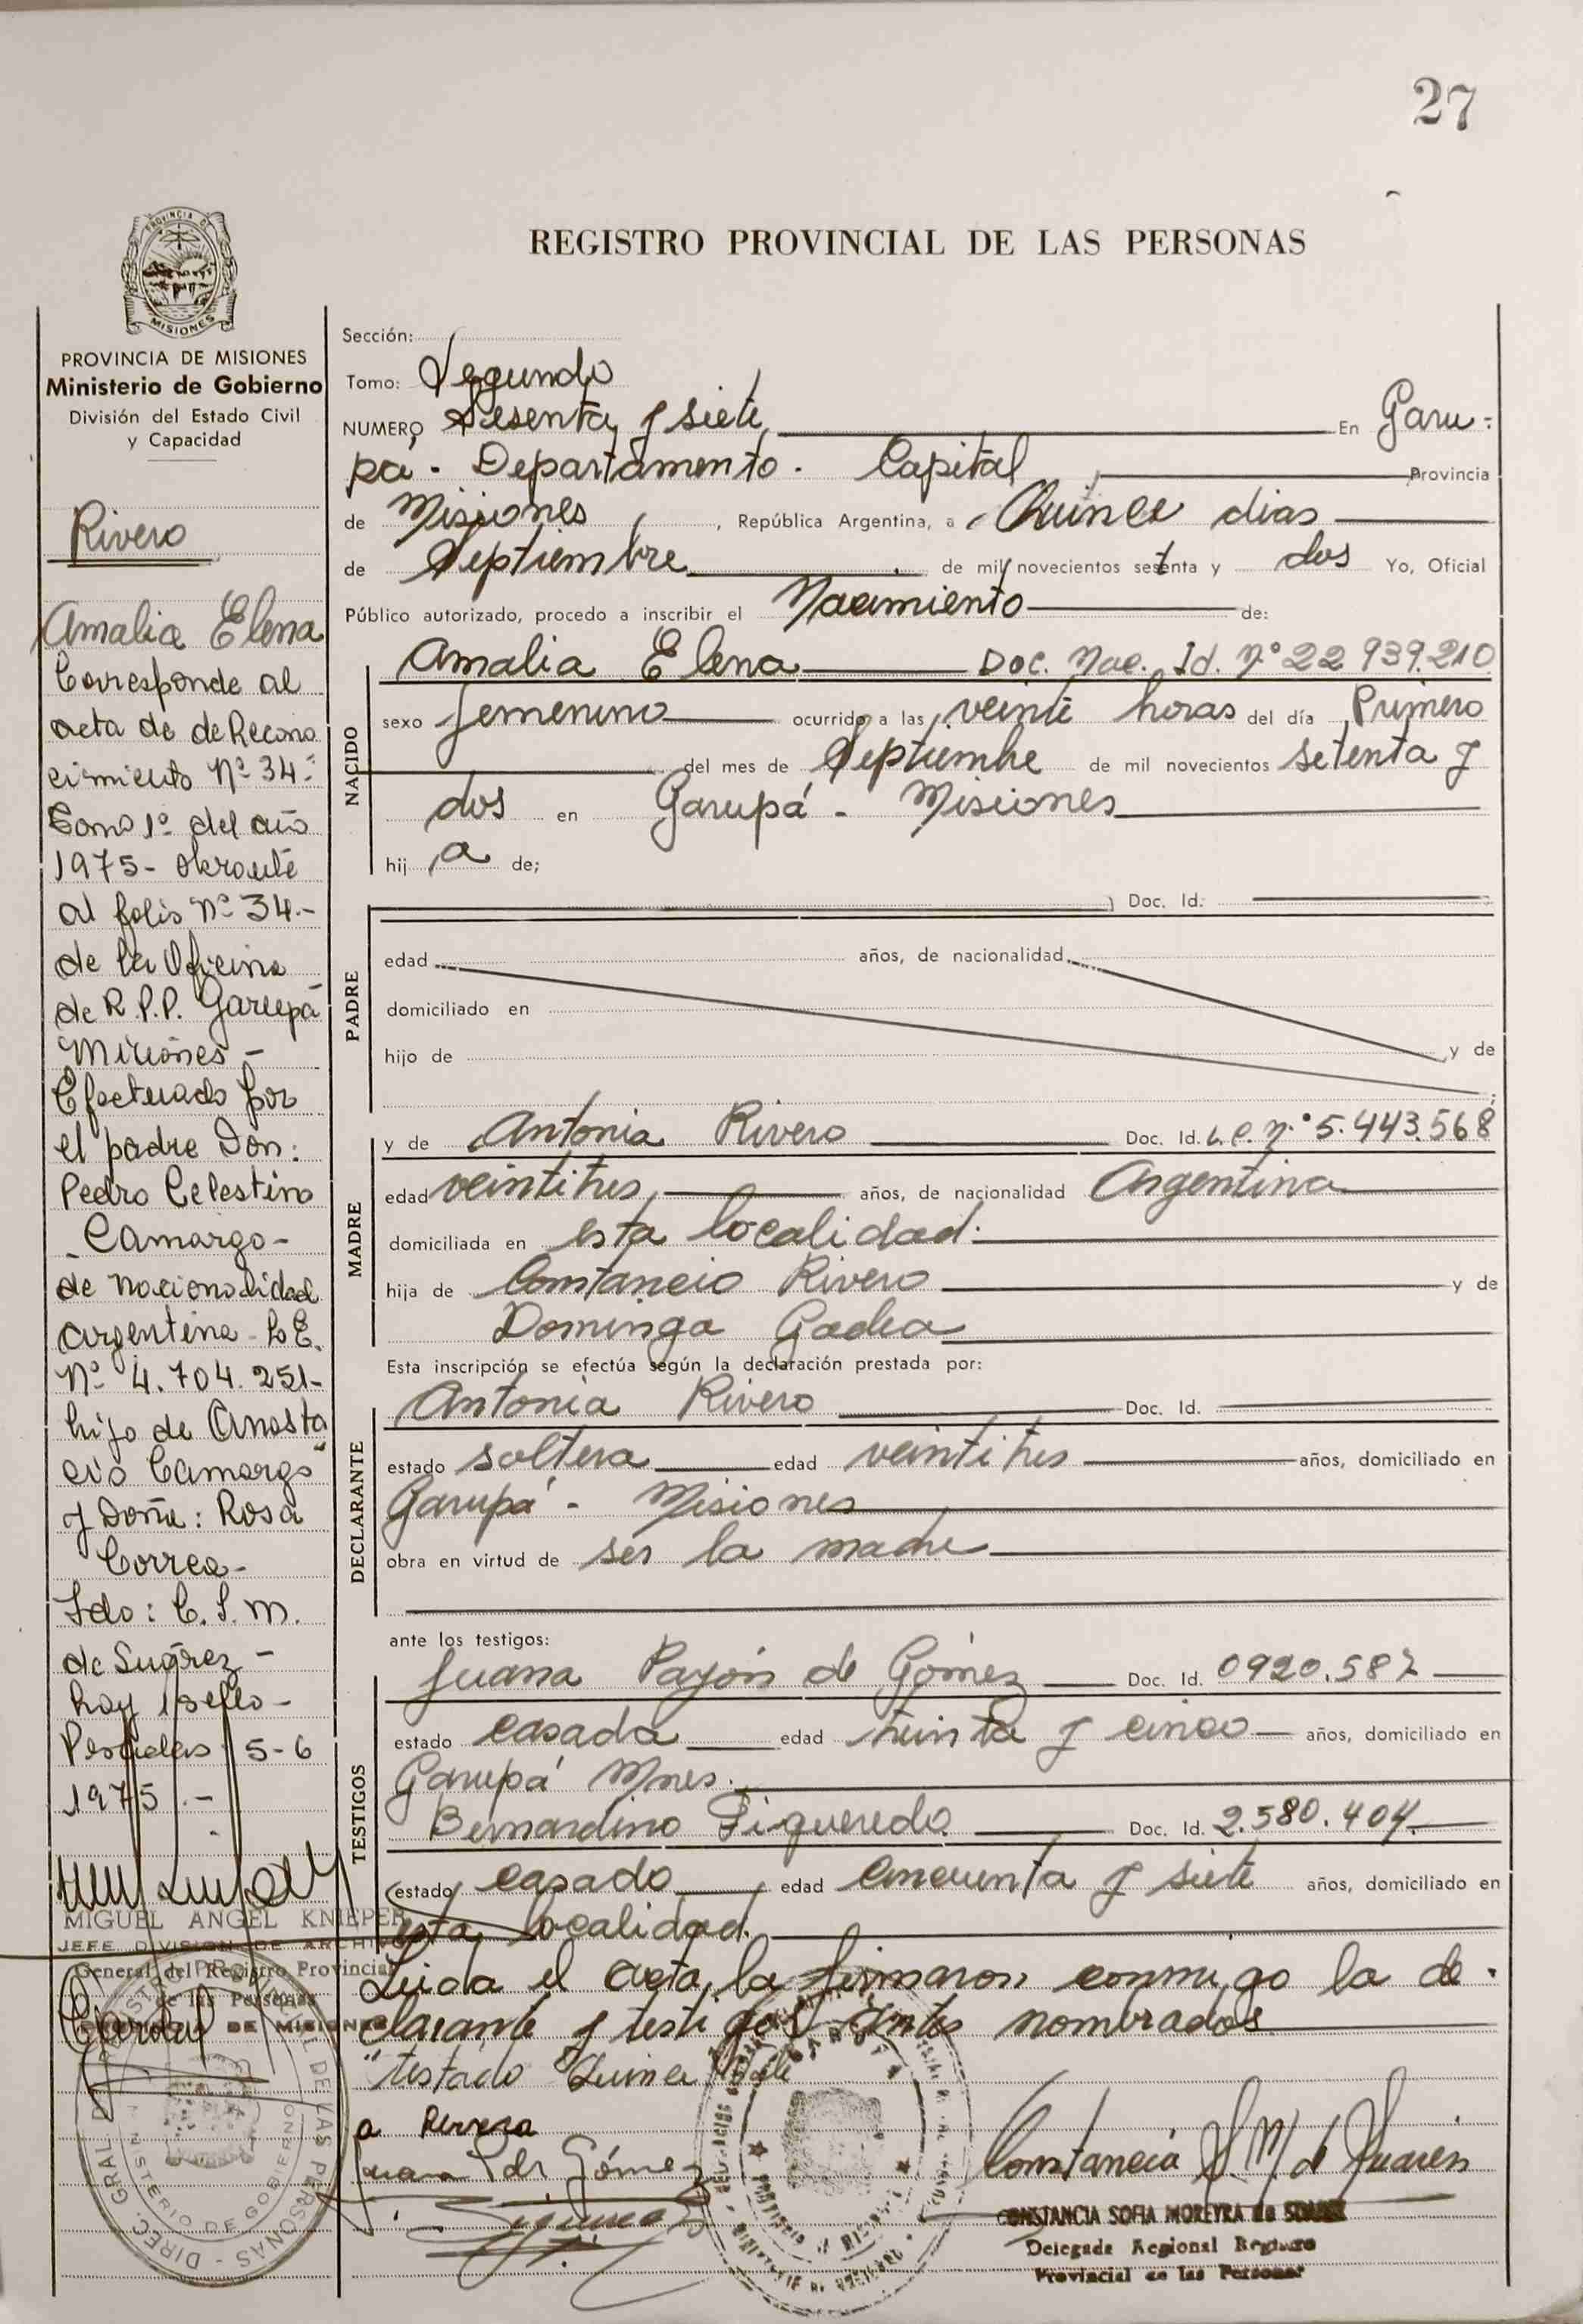 27
REGISTRO PROVINCIAL DE LAS PERSONAS
PROVINCIA DE MISIONES
Ministerio de Gobierno
División del Estado Civil
y Capacidad
Rivero
Amalia Elena
Corresponde al
acta de de Recono
cimiento Nº 34-
Tomo 1º del año
1975- obrante
al folio Nº 34.-
de la Oficina
de R.P.P. Garupá
Misiones -
Efectuado por
el padre Don:
Pedro Celestino
- Camargo -
de nacionalidad
argentina - L.E.
Nº 4.704.251-
hijo de Anasta
cio Camargo
y Doña: Rosa
Correa-
Fdo: C.S.M.
de Suárez -
hay 1 sello -
Posadas 5-6
1975.-
MIGUEL ANGEL KNIEPER
JEFE DIVISION DE ARCHIVO
General del Registro Provincial
de las Personas
PROVINCIA DE MISIONES
Sección:
Tomo: Segundo
NUMERO Sesenta y siete En Garu-
pá - Departamento - Capital, Provincia
de Misiones, República Argentina, a Quince dias
de Septiembre de mil novecientos setenta y dos Yo, Oficial
Público autorizado, procedo a inscribir el Nacimiento de:
NACIDO
Amalia Elena Doc. Nac. Id. Nº 22 939.210
sexo femenino ocurrido a las veinte horas del día Primero
del mes de Septiembre de mil novecientos setenta y
dos en Garupá - Misiones
hij a de;
PADRE
Doc. Id.
edad años, de nacionalidad
domiciliado en
hijo de y de
MADRE
y de Antonia Rivero Doc. Id. L.C. Nº 5.443.568
edad veintitres, años, de nacionalidad Argentina
domiciliada en esta localidad.
hija de Constancio Rivero y de
Dominga Gadea
Esta inscripción se efectúa según la declaración prestada por:
DECLARANTE
Antonia Rivero Doc. Id.
estado soltera edad veintitres años, domiciliado en
Garupá - Misiones
obra en virtud de ser la madre
ante los testigos:
TESTIGOS
Juana Payón de Gómez Doc. Id. 0920.587
estado casada edad treinta y cinco años, domiciliado en
Garupá Mnes.
Bernardino Figueredo Doc. Id. 2.580.404.
estado casado edad cincuenta y siete años, domiciliado en
esta localidad.
Leida el acta, la firmaron conmigo la de-
clarante y testigos antes nombrados
"testado "Quince" Vale
a Rivero
Juana P de Gómez
Constancia S. M. de Suarez
CONSTANCIA SOFIA MOREYRA de SUAREZ
Delegada Regional Registro
Provincial de las Personas